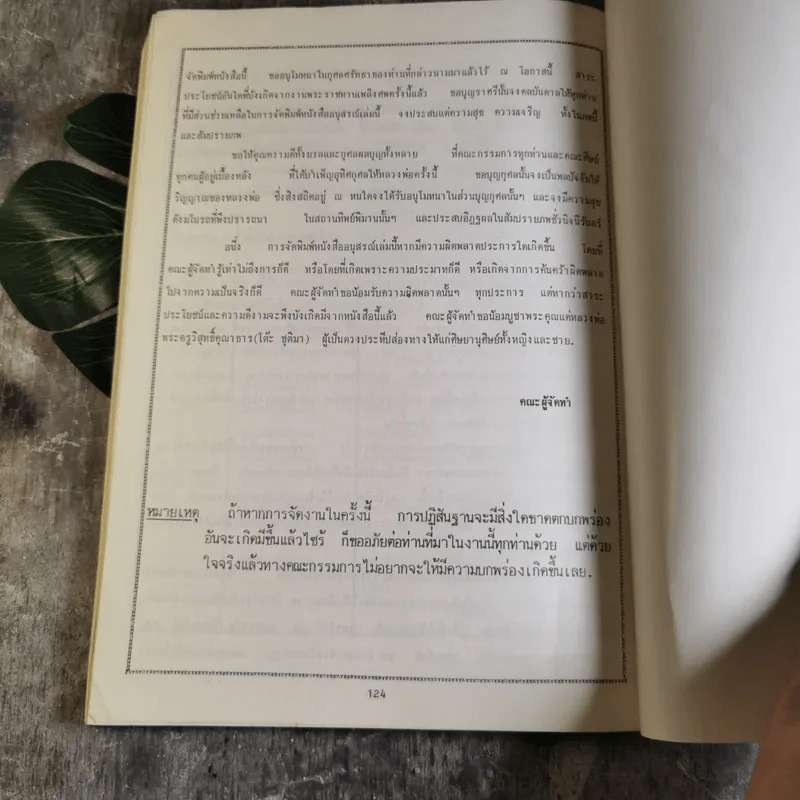 จัดพิมพ์หนังสือนี้ ขออนุโมทนาในกุศลศรัทธาของท่านที่กล่าวนามมาแล้วไว้ ณ โอกาสนี้ สาระ
ประโยชน์อันใดที่บังเกิดจากงานพระราชทานเพลิงศพครั้งนี้แล้ว ขอบุญราศรีนั้นจงดลบันดาลให้ทุกท่าน
ที่มีส่วนช่วยเหลือในการจัดพิมพ์หนังสืออนุสรณ์เล่มนี้ จงประสบแต่ความสุข ความเจริญ ทั้งในภพนี้
และสัมปรายภพ
ขอให้คุณความดีทั้งมวลและกุศลผลบุญทั้งหลาย ที่คณะกรรมการทุกท่านและคณะศิษย์
ทุกคนผู้อยู่เบื้องหลัง ที่ได้บำเพ็ญอุทิศกุศลให้หลวงพ่อครั้งนี้ ขอบุญกุศลนั้นจงเป็นพลปัจจัยให้
วิญญาณของหลวงพ่อ ซึ่งสิงสถิตอยู่ ณ หนใดจงได้รับอนุโมทนาในส่วนบุญกุศลนั้นๆ และจงมีความสุข
ดังมโนรถที่พึงปรารถนา ในสถานทิพย์พิมานนั้นๆ และประสบอิฏฐผลในสัมปรายภพชั่วนิจนิรันดร์
อนึ่ง การจัดพิมพ์หนังสืออนุสรณ์เล่มนี้หากมีความผิดพลาดประการใดเกิดขึ้น โดยที่
คณะผู้จัดทำรู้เท่าไม่ถึงการก็ดี หรือโดยที่เกิดเพราะความประมาทก็ดี หรือเกิดจากการค้นคว้าผิดพลาด
ไปจากความเป็นจริงก็ดี คณะผู้จัดทำขอน้อมรับความผิดพลาดนั้นๆ ทุกประการ แต่หากว่าสาระ
ประโยชน์และความดีงามจะพึงบังเกิดมีจากหนังสือนี้แล้ว คณะผู้จัดทำขอน้อมบูชาพระคุณแด่หลวงพ่อ
พระครูวิสุทธิ์คุณาธาร(โต๊ะ ชุติมา) ผู้เป็นดวงประทีปส่องทางให้แก่ศิษยานุศิษย์ทั้งหญิงและชาย.
คณะผู้จัดทำ
หมายเหตุ ถ้าหากการจัดงานในครั้งนี้ การปฏิสันฐานจะมีสิ่งใดขาดตกบกพร่อง
อันจะเกิดมีขึ้นแล้วไซร้ ก็ขออภัยต่อท่านที่มาในงานนี้ทุกท่านด้วย แต่ด้วย
ใจจริงแล้วทางคณะกรรมการไม่อยากจะให้มีความบกพร่องเกิดขึ้นเลย.
124